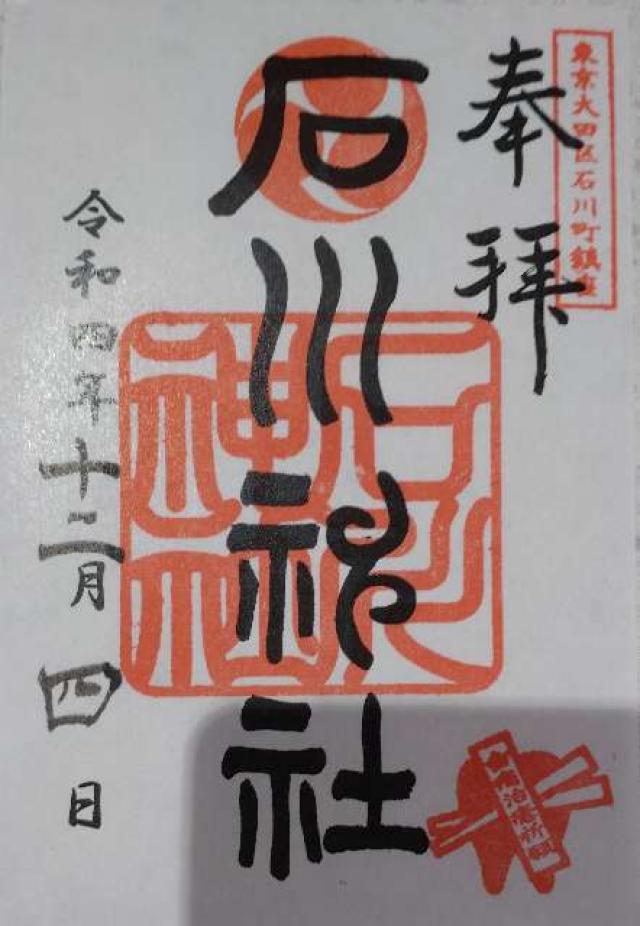 東京大田区石川町鎮座
奉拝
石川神社
石川神社
令和四年十二月四日